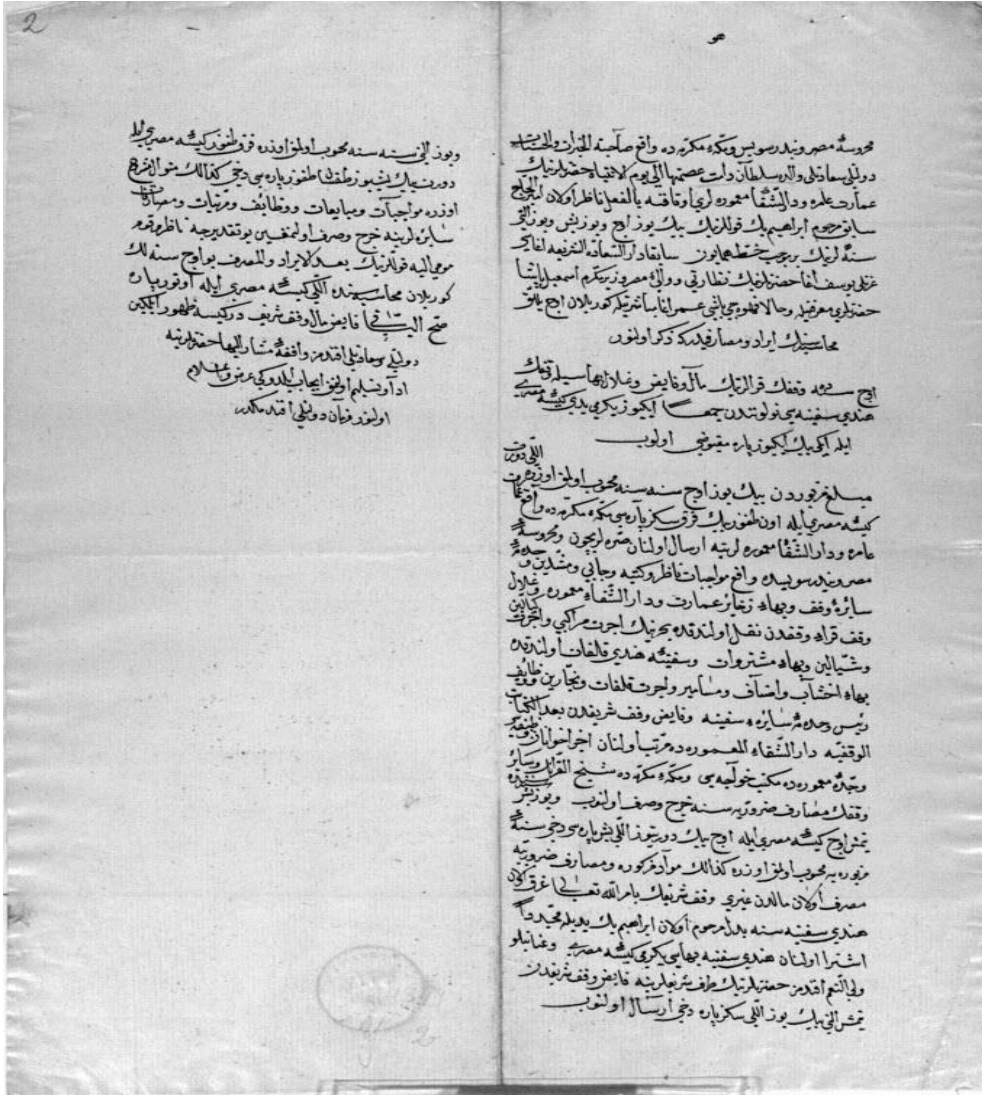 هو
محروسهٔ مصر وبندر سويس ومكهٔ مكرمه ده واقع صاحبة الخيرات والحسنات
دولتلى سعادتلى والده سلطان دامت عصمتها الى يوم حضرتلرينك
عمارت عامره ودار الشفاء معموره لرى اوقافنه بالفعل ناظر اولان امير الحاج
سابق مرحوم ابراهيم بك قوللرينك بيك يوز اوچ ويوز بش ويوز التى
سنه لرينك بر موجب خط همايون سابقا دار السعادة الشريفه اغاسى
عزتلى يوسف اغا حضرتلرينك نظارتى ووالئ مصر وزير مكرم اسمعيل پاشا
حضرتلرى معرفتيله وحالا قپوجى باشى عمر اغا مباشرتيله كوريلان اوچ ييللق
محاسبه سنك ايراد ومصارفيدر كه ذكر اولنور
اوچ سنه ده وقفك قرالرينك مال وفايض وغلال بهاسيله وقفك
هندى سفينه سى نولوندن جمعا ايكيوز يكرمى يدى كيسه مصرى
ايله ايكى بيك ايكيوز پاره مقبوضى اولوب
مبلغ مزبوردن بيك يوز اوچ سنه سنه محسوب اولمق اوزره اللى دورت
كيسه مصرى ايله اون طقوز بيك قرق سكز پاره سى مكهٔ مكرمه ده واقع عمارت
عامره ودار الشفاء معموره لرينه ارسال اولنان صره لريچون ومحروسهٔ
مصر وبندر سويسده واقع مواجبات ناظر وكتبه وجابى ومشدين وخدمهٔ
سائرهٔ وقف وبهاء زخائر عمارت ودار الشفاء معموره وغلال
وقف قراء وقفدن نقل اولندقده بحرينك اجرت مراكبى واجرت كيالين
وشيالين وبهاء مشتروات وسفينهٔ هندى قالفات اولندقده
بهاء اخشاب واصناف ومسامير واجرت قلفات ونجارين ووظايف
رئيس وخدمهٔ سائرهٔ سفينه وفايض وقف شريفدن بعد
الوقفيه دار الشفاء المعموره ده مرتب اولنان
وجدهٔ معموره ده مكتب خواجه سى ومكهٔ مكرمه ده شيخ القرا وسائر
وقفك مصارف ضروريه سنه خرج وصرف اولنوب ويوز بش سنه سنده
يتمش اوچ كيسه مصرى ايله اوچ بيك دورتيوز اللى بش پاره سى دخى سنهٔ
مزبوره يه محسوب اولمق اوزره كذالك مواد مذكوره ومصارف ضروريه
مصرف اولان مالدن غيرى وقف شريفك بامر الله تعالى غرق اولان
هندى سفينه سنه بدل مرحوم اولان ابراهيم بك يديله مجددا
اشترا اولنان هندى سفينه بهاسى يكرمى كيسه مصرى وعنايتلو
ولى النعم افندمز حضرتلرينك طرف شريفلرينه فايض وقف شريفدن
يتمش التى بيك يوز اللى سكز پاره دخى ارسال اولنوب
ويوز التى سنه سنه محسوب اولمق اوزره قرق طقوز كيسه مصرى ايله
دورت بيك بشيوز طقسان طقوز پاره سى دخى كذالك منوال مشروح
اوزره مواجبات ومبايعات ووظائف ومرتبات ومصارفات
سايره لرينه خرج وصرف اولنمغين بو تقديرجه ناظر مرقوم
مومى اليه قوللرينك بعد الايراد والمصرف بو اوچ سنه لك
كوريلان محاسبه سنده اللى كيسه مصرى ايله اوتوز پاره
صح الباقى فايض مال وقف شريف در كيسه ظهور ايلمكين
دولتلى سعادتلى افندمز واقفهٔ مشار اليها حضرتلرينه
ادا وتسليم اولنمق ايجاب ايلدوكى عرض واعلام
اولنور فرمان دولتلى افندمكدر
2